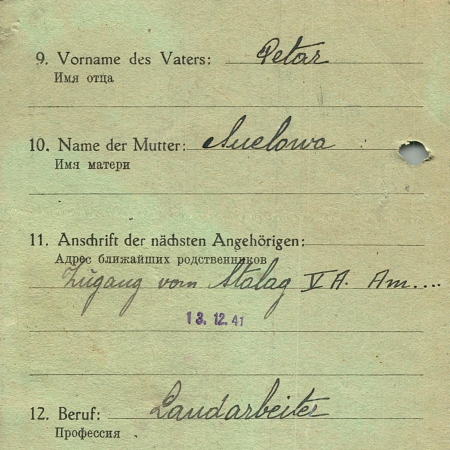 9. Vorname des Vaters: Petar
Имя отца
10. Name der Mutter: Auelowa
Имя матери
11. Anschrift der nächsten Angehörigen:
Адрес ближайших родственников
Zugang vom Stalag V A. Am....
13.12.41
12. Beruf: Landarbeiter
Профессия